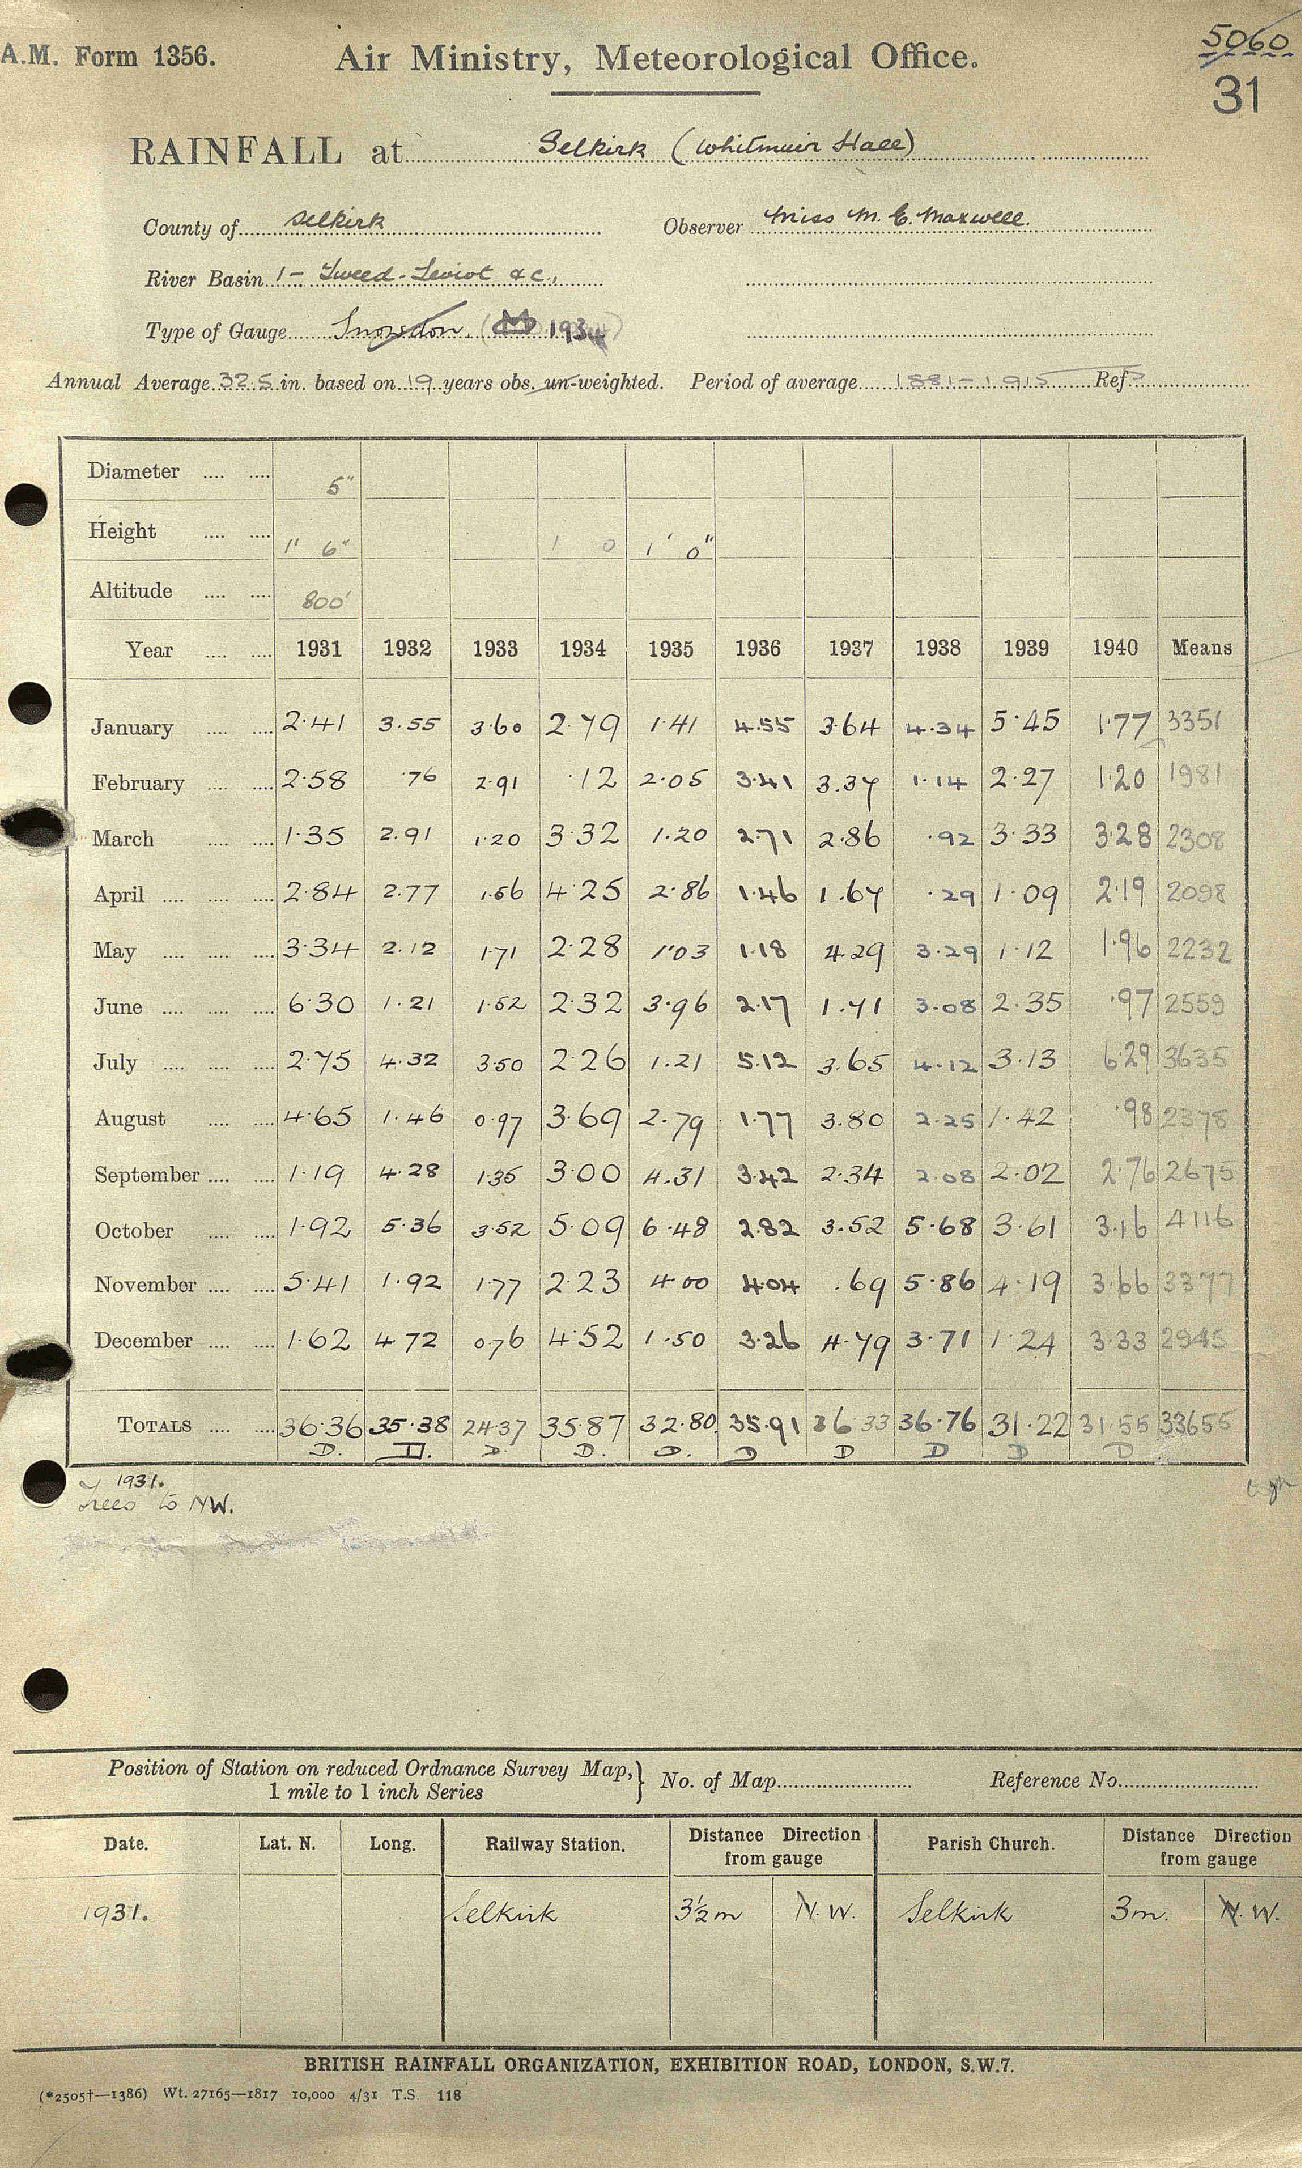 5060
A.M. Form 1356. Air Ministry, Meteorological Office.
31
RAINFALL at Selkirk (Whitmuir Hall)
County of Selkirk Observer Miss M. E. Maxwell.
River Basin 1 - Tweed - Teviot &c.,
Type of Gauge Snowdon. 1934
Annual Average 32.5 in. based on 19 years obs. un-weighted. Period of average 1881-1915 Ref.
Diameter 5"
Height 1' 6" 1 0 1' 0"
Altitude 800'
Year 1931 1932 1933 1934 1935 1936 1937 1938 1939 1940 Means
January 2.41 3.55 3.60 2.79 1.41 4.55 3.64 4.34 5.45 1.77 3351
February 2.58 .76 2.91 .12 2.05 3.41 3.37 1.14 2.27 1.20 1981
March 1.35 2.91 1.20 3.32 1.20 2.71 2.86 .92 3.33 3.28 2308
April 2.84 2.77 1.56 4.25 2.86 1.46 1.67 .29 1.09 2.19 2098
May 3.34 2.12 1.71 2.28 1.03 1.18 4.29 3.29 1.12 1.96 2232
June 6.30 1.21 1.52 2.32 3.96 2.17 1.71 3.08 2.35 .97 2559
July 2.75 4.32 3.50 2.26 1.21 5.12 3.65 4.12 3.13 6.29 3635
August 4.65 1.46 0.97 3.69 2.79 1.77 3.80 2.25 1.42 .98 2378
September 1.19 4.28 1.35 3.00 4.31 3.42 2.34 2.08 2.02 2.76 2675
October 1.92 5.36 3.52 5.09 6.48 2.82 3.52 5.68 3.61 3.16 4116
November 5.41 1.92 1.77 2.23 4.00 4.04 .69 5.86 4.19 3.66 3377
December 1.62 4.72 0.76 4.52 1.50 3.26 4.79 3.71 1.24 3.33 2945
TOTALS 36.36 35.38 24.37 35.87 32.80 35.91 36.33 36.76 31.22 31.55 33655
D. D. D. D. D. D D D D D
1931.
Trees to NW.
Position of Station on reduced Ordnance Survey Map, } No. of Map Reference No.
1 mile to 1 inch Series
Date. Lat. N. Long. Railway Station. Distance Direction from gauge Parish Church. Distance Direction from gauge
1931. Selkirk 3½m N.W. Selkirk 3m. N.W.
BRITISH RAINFALL ORGANIZATION, EXHIBITION ROAD, LONDON, S.W.7.
(*2505†—1386) Wt. 27165—1817 10,000 4/31 T.S. 118